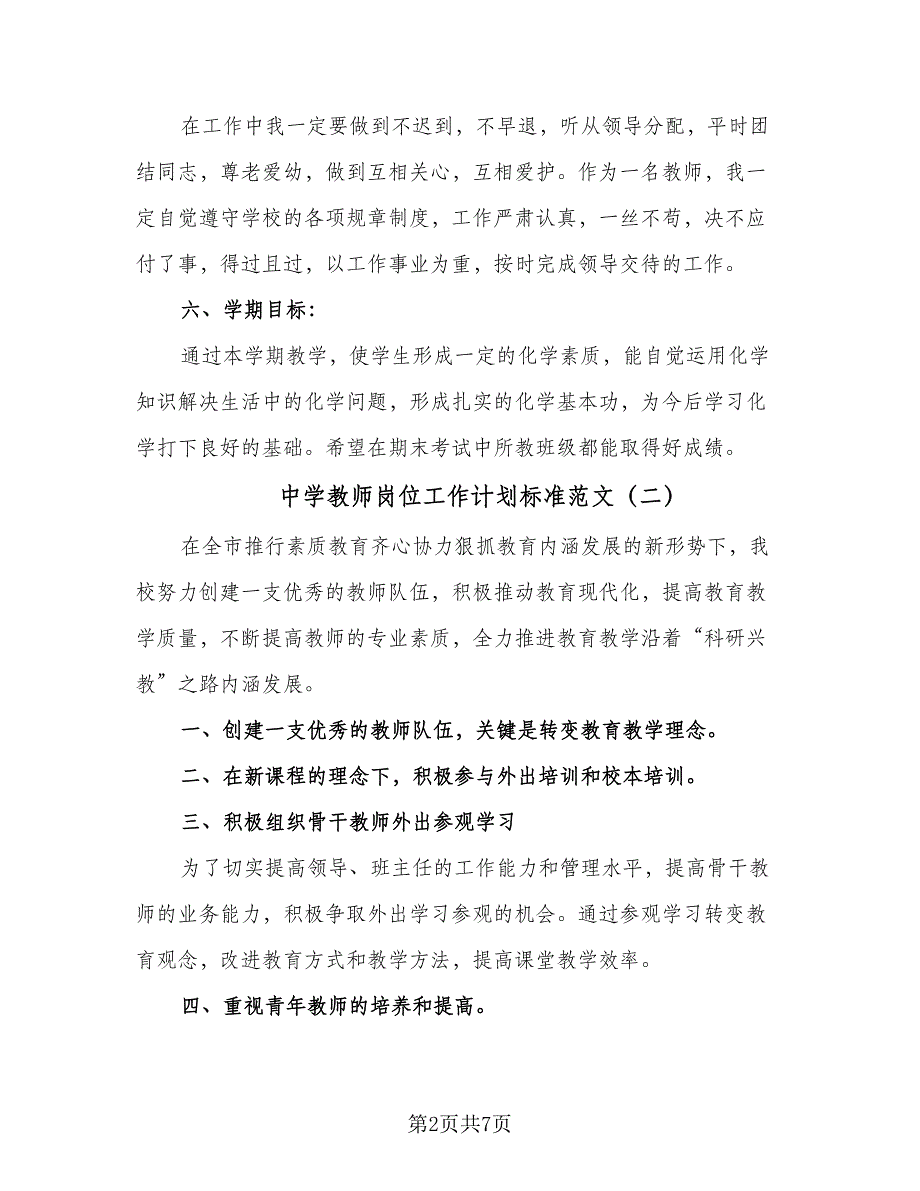 在工作中我一定要做到不迟到，不早退，听从领导分配，平时团
结同志，尊老爱幼，做到互相关心，互相爱护。作为一名教师，我一
定自觉遵守学校的各项规章制度，工作严肃认真，一丝不苟，决不应
付了事，得过且过，以工作事业为重，按时完成领导交待的工作。
六、学期目标：
通过本学期教学，使学生形成一定的化学素质，能自觉运用化学
知识解决生活中的化学问题，形成扎实的化学基本功，为今后学习化
学打下良好的基础。希望在期末考试中所教班级都能取得好成绩。
中学教师岗位工作计划标准范文（二）
在全市推行素质教育齐心协力狠抓教育内涵发展的新形势下，我
校努力创建一支优秀的教师队伍，积极推动教育现代化，提高教育教
学质量，不断提高教师的专业素质，全力推进教育教学沿着“科研兴
教”之路内涵发展。
一、创建一支优秀的教师队伍，关键是转变教育教学理念。
二、在新课程的理念下，积极参与外出培训和校本培训。
三、积极组织骨干教师外出参观学习
为了切实提高领导、班主任的工作能力和管理水平，提高骨干教
师的业务能力，积极争取外出学习参观的机会。通过参观学习转变教
育观念，改进教育方式和教学方法，提高课堂教学效率。
四、重视青年教师的培养和提高。
第2页共7页